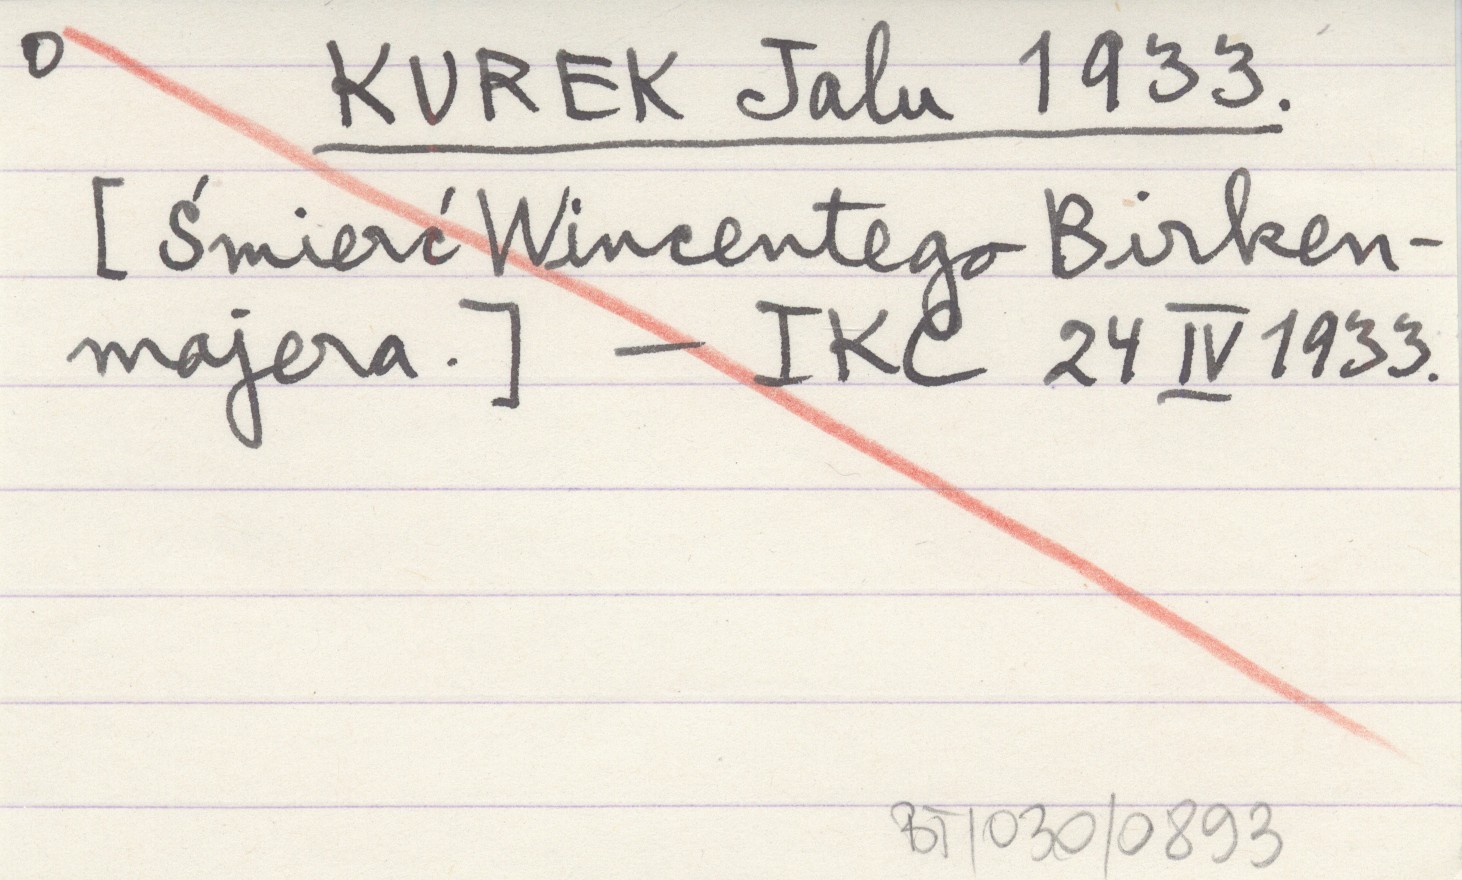 O KUREK Jalu 1933.
[Śmierć Wincentego Birken-
majera.] — IKC 24 IV 1933.
BT/030/0893